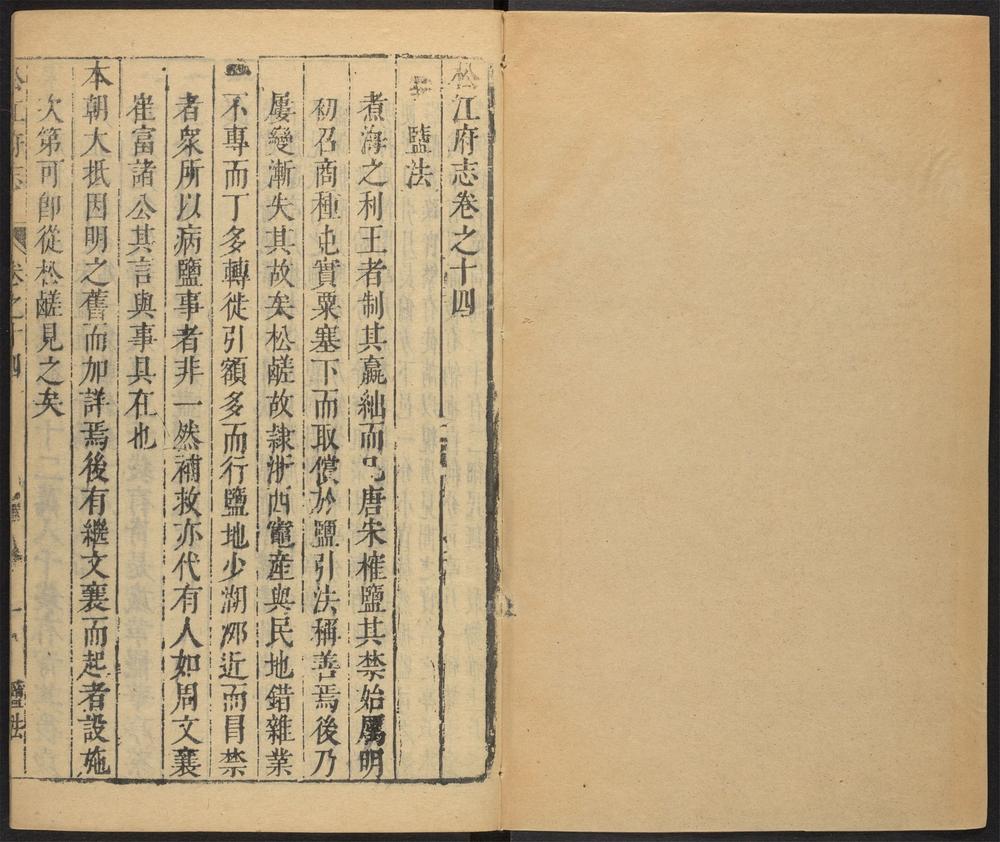 松江府志卷之十四
鹽法
煮海之利王者制其贏絀而已唐宋榷鹽其禁始厲明
初召商種屯實粟塞下而取償於鹽引法稱善焉後乃
屢變漸失其故矣松鹺故隸浙西竈産與民地錯雜業
不專而丁多轉徙引額多而行鹽地少湖泖近而冒禁
者衆所以病鹽事者非一然補救亦代有人如周文襄
崔富諸公其言與事具在也
本朝大抵因明之舊而加詳焉後有繼文襄而起者設施
次第可卽從松鹺見之矣
松江府志 卷之十四 鹽法 一